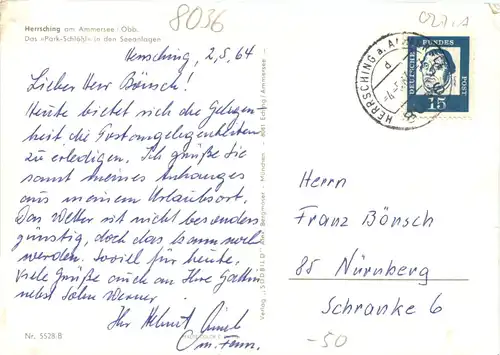 8036
Herrsching am Ammersee / Obb.
Das »Park-Schlößl« in den Seeanlagen
Herrsching, 2.5.64
Lieber Herr Bönsch!
Heute bietet sich die Gelegen
heit die Postangelegenheiten
zu erledigen. Ich grüße Sie
samt meines Anhanges
aus meinem Urlaubsort.
Das Wetter ist nicht besonders
günstig, doch das kann noch
werden. Soviel für heute.
Viele Grüße auch an Ihre Gattin
nebst Sohn Werner.
Ihr Helmut
u. Fam.
Nr. 5528.B
Verlag „SÜDBILD"
München
HERRSCHING a. A
DEUTSCHE BUNDESPOST
15
Herrn
Franz Bönsch
85 Nürnberg
Schranke 6
-50